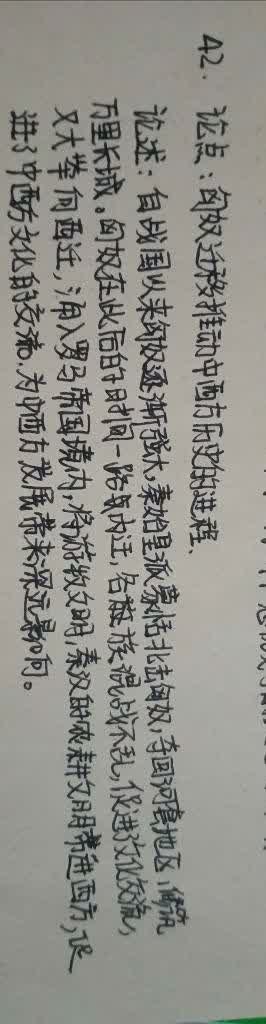 42. 论点：匈奴迁移推动中西方历史的进程、
论述：自战国以来匈奴逐渐强大，秦始皇派蒙恬北击匈奴，夺回河套地区，修筑
万里长城。匈奴在此后的时间一路南内迁，各种族混战不乱，促进了文化交流，
又大举向西迁，涌入罗马帝国境内，将游牧文明，秦汉的农耕文明带进西方，促
进了中西方文化的交流、为中西方发展带来深远影响。